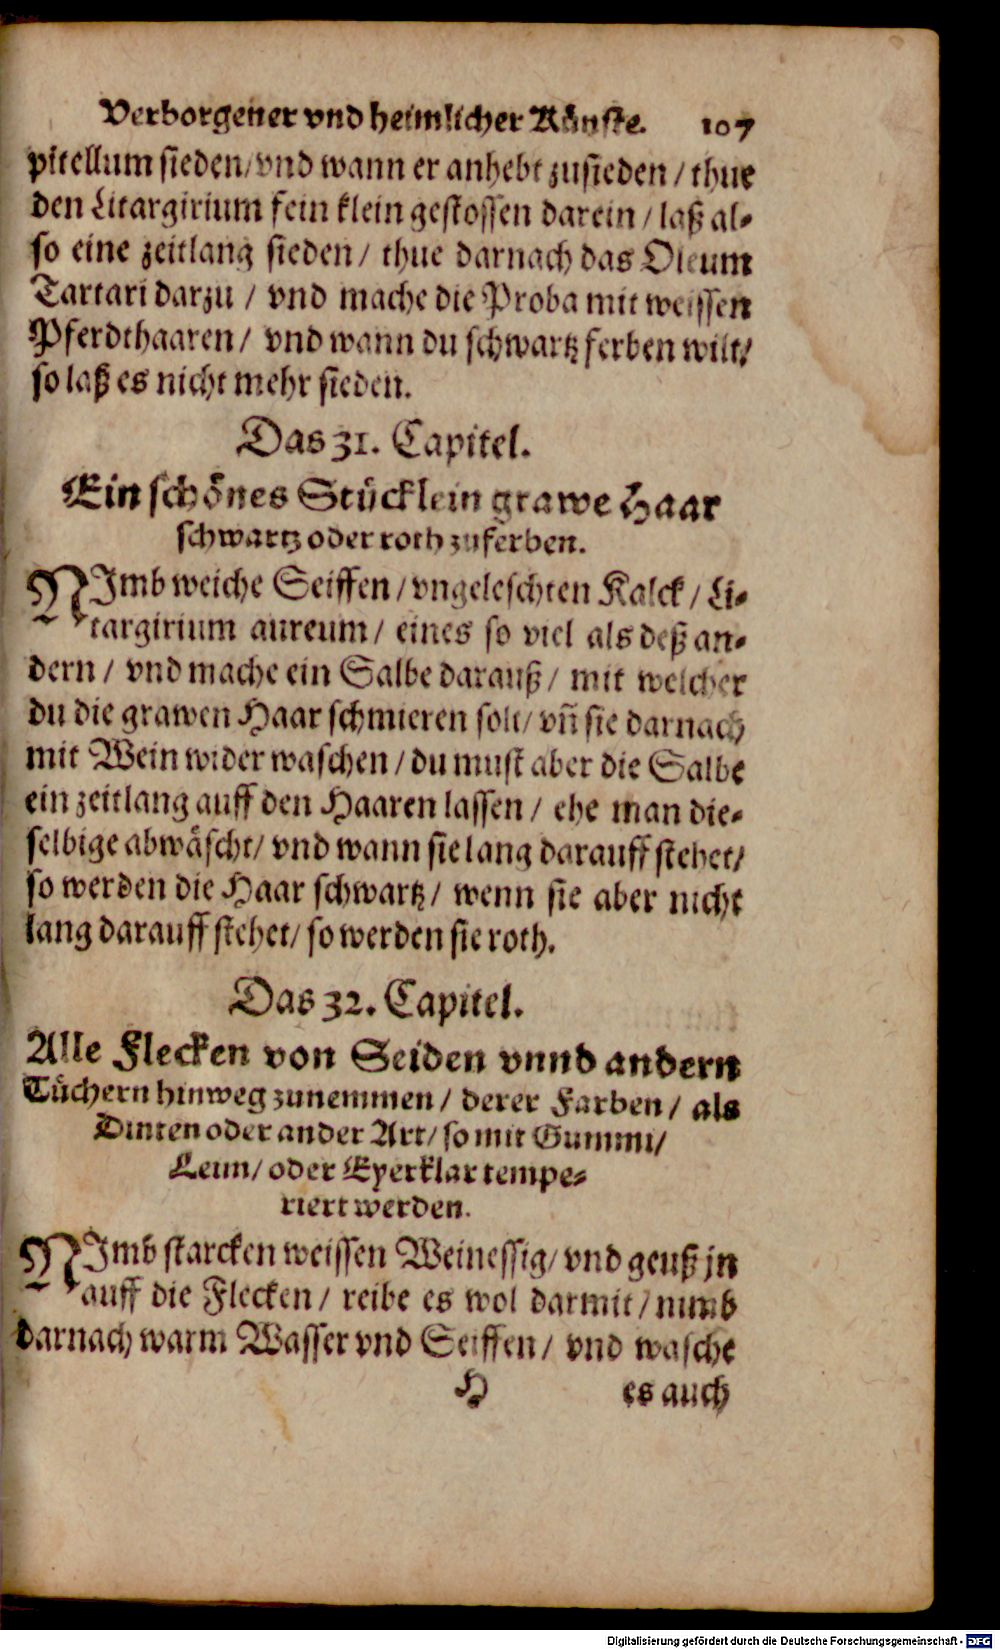 Verborgener vnd heimlicher Künste. 107
pitellum sieden/ vnd wann er anhebt zusieden / thue
den Litargirium fein klein gestossen darein / laß al-
so eine zeitlang sieden / thue darnach das Oleum
Tartari darzu / vnd mache die Proba mit weissen
Pferdthaaren / vnd wann du schwartz ferben wilt/
so laß es nicht mehr sieden.
Das 31. Capitel.
Ein schönes Stücklein grawe Haar
schwartz oder roth zuferben.
NImb weiche Seiffen / vngeleschten Kalck / Li-
targirium aureum / eines so viel als deß an-
dern / vnd mache ein Salbe darauß / mit welcher
du die grawen Haar schmieren solt/ vñ sie darnach
mit Wein wider waschen / du must aber die Salbe
ein zeitlang auff den Haaren lassen / ehe man die-
selbige abwäscht/ vnd wann sie lang darauff stehet/
so werden die Haar schwartz / wenn sie aber nicht
lang darauff stehet/ so werden sie roth.
Das 32. Capitel.
Alle Flecken von Seiden vnnd andern
Tüchern hinweg zunemmen / derer Farben / als
Dinten oder ander Art/ so mit Gummi/
Leim/ oder Eyerklar tempe-
riert werden.
NImb starcken weissen Weinessig/ vnd geuß jn
auff die Flecken / reibe es wol darmit / nimb
darnach warm Wasser vnd Seiffen / vnd wasche
H es auch
Digitalisierung gefördert durch die Deutsche Forschungsgemeinschaft - DFG